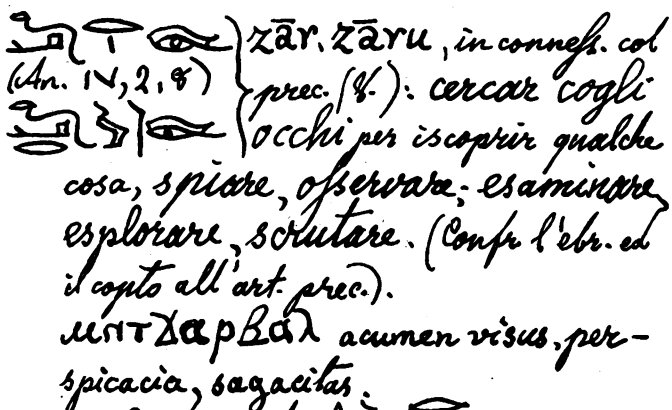 zār, zāru, in conness. col
(An. IV, 2, 8) prec. (V.): cercar cogli
occhi per iscoprir qualche
cosa, spiare, osservare; esaminare,
esplorare, scrutare. (Confr l'ebr. ed
il copto all'art. prec.).
ⲙⲛⲧϫⲁⲣⲃⲁⲗ acumen visus, per-
spicacia, sagacitas.